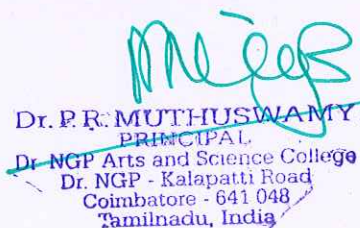 Dr. P.R. MUTHUSWAMY
PRINCIPAL
Dr. NGP Arts and Science College
Dr. NGP - Kalapatti Road
Coimbatore - 641 048
Tamilnadu, India